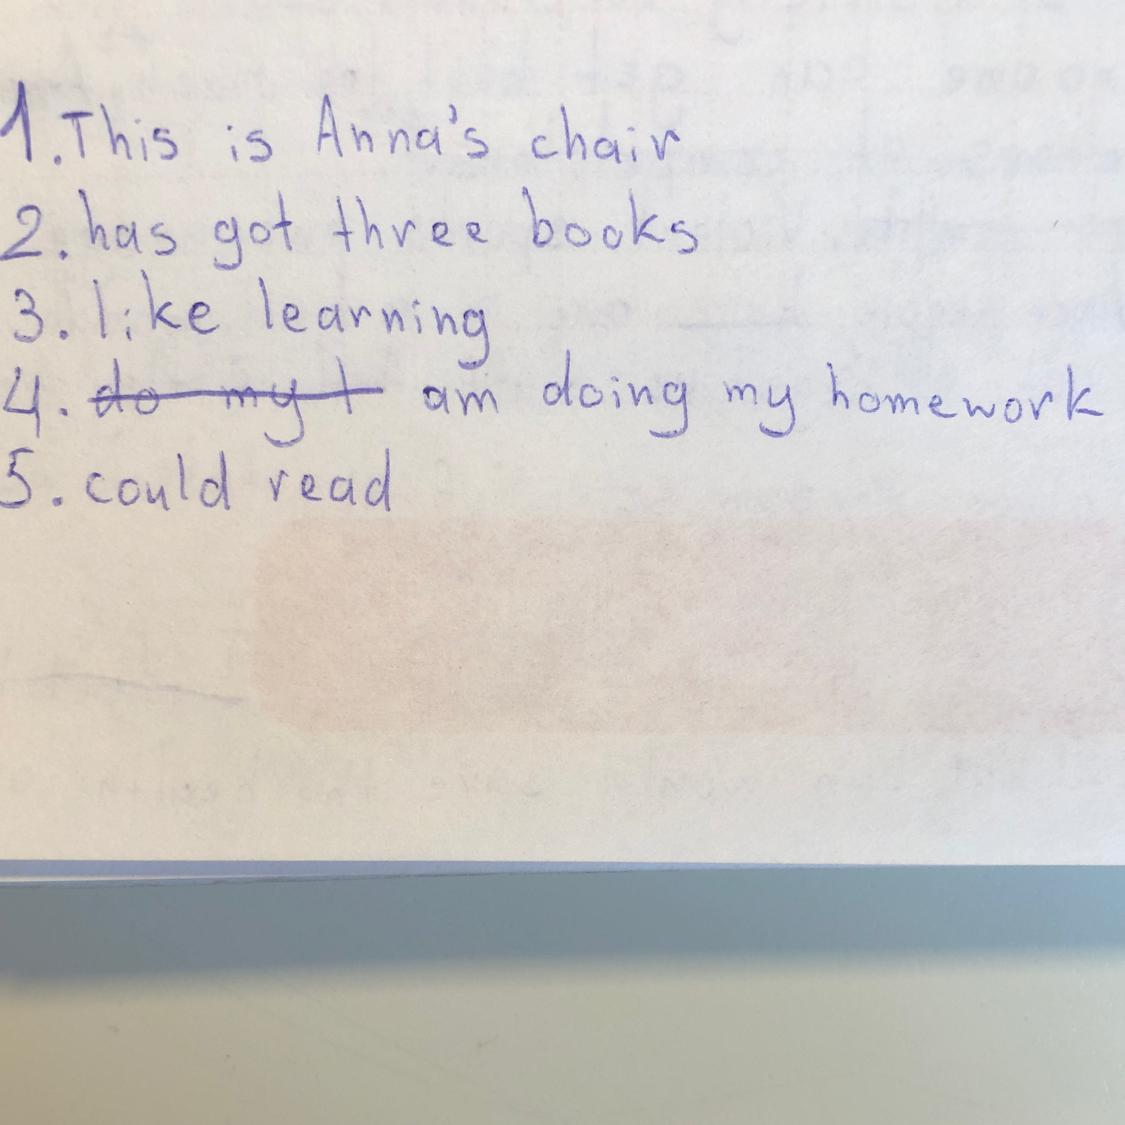 1. This is Anna's chair
2. has got three books
3. like learning
4. do my t am doing my homework
5. could read